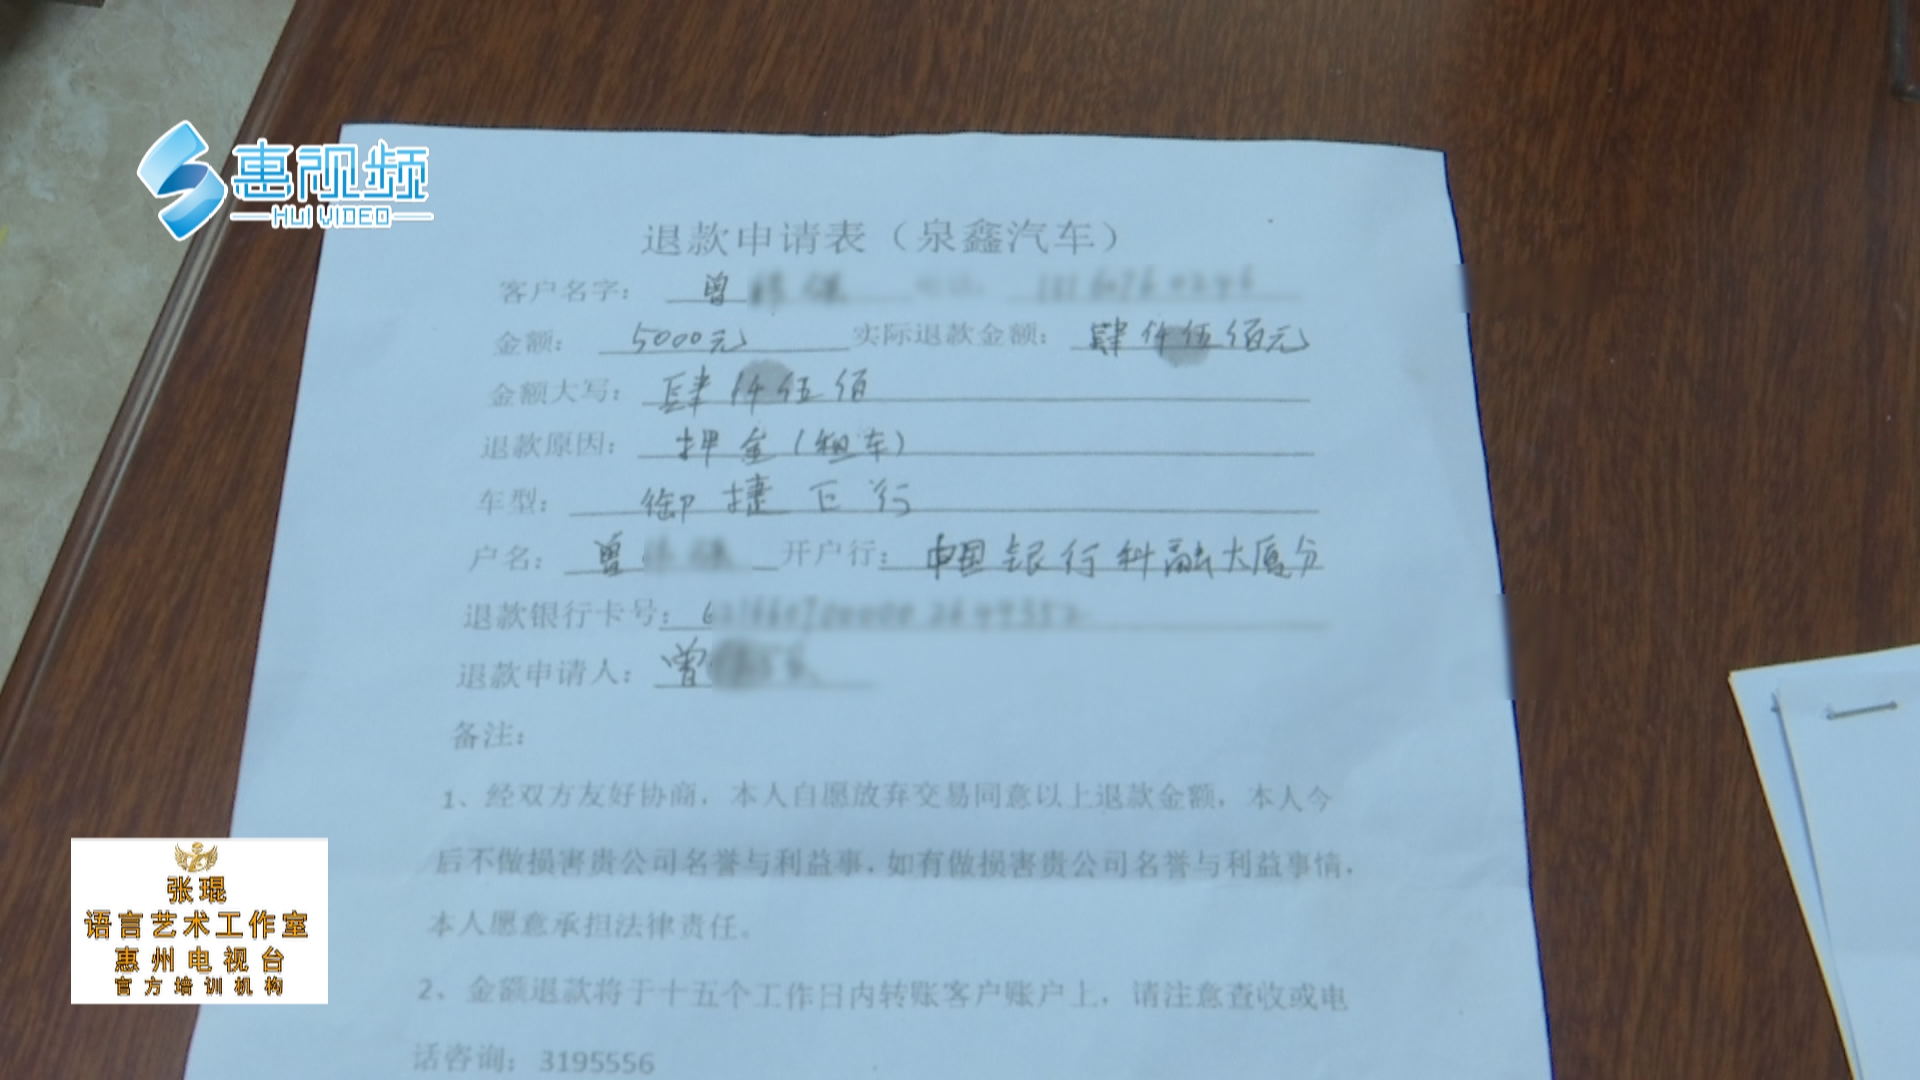 惠视频
HUI VIDEO
退款申请表（泉鑫汽车）
客户名字： 曾
金额： 5000元 实际退款金额： 肆仟伍佰元
金额大写： 肆仟伍佰
退款原因： 押金（租车）
车型： 御捷 飞行
户名： 曾 开户行： 中国银行科融大厦分
退款银行卡号： 6
退款申请人： 曾
备注：
1、经双方友好协商，本人自愿放弃交易同意以上退款金额，本人今
后不做损害贵公司名誉与利益事，如有做损害贵公司名誉与利益事情，
本人愿意承担法律责任。
2、金额退款将于十五个工作日内转账客户账户上，请注意查收或电
话咨询：3195556
张琨
语言艺术工作室
惠州电视台
官方培训机构